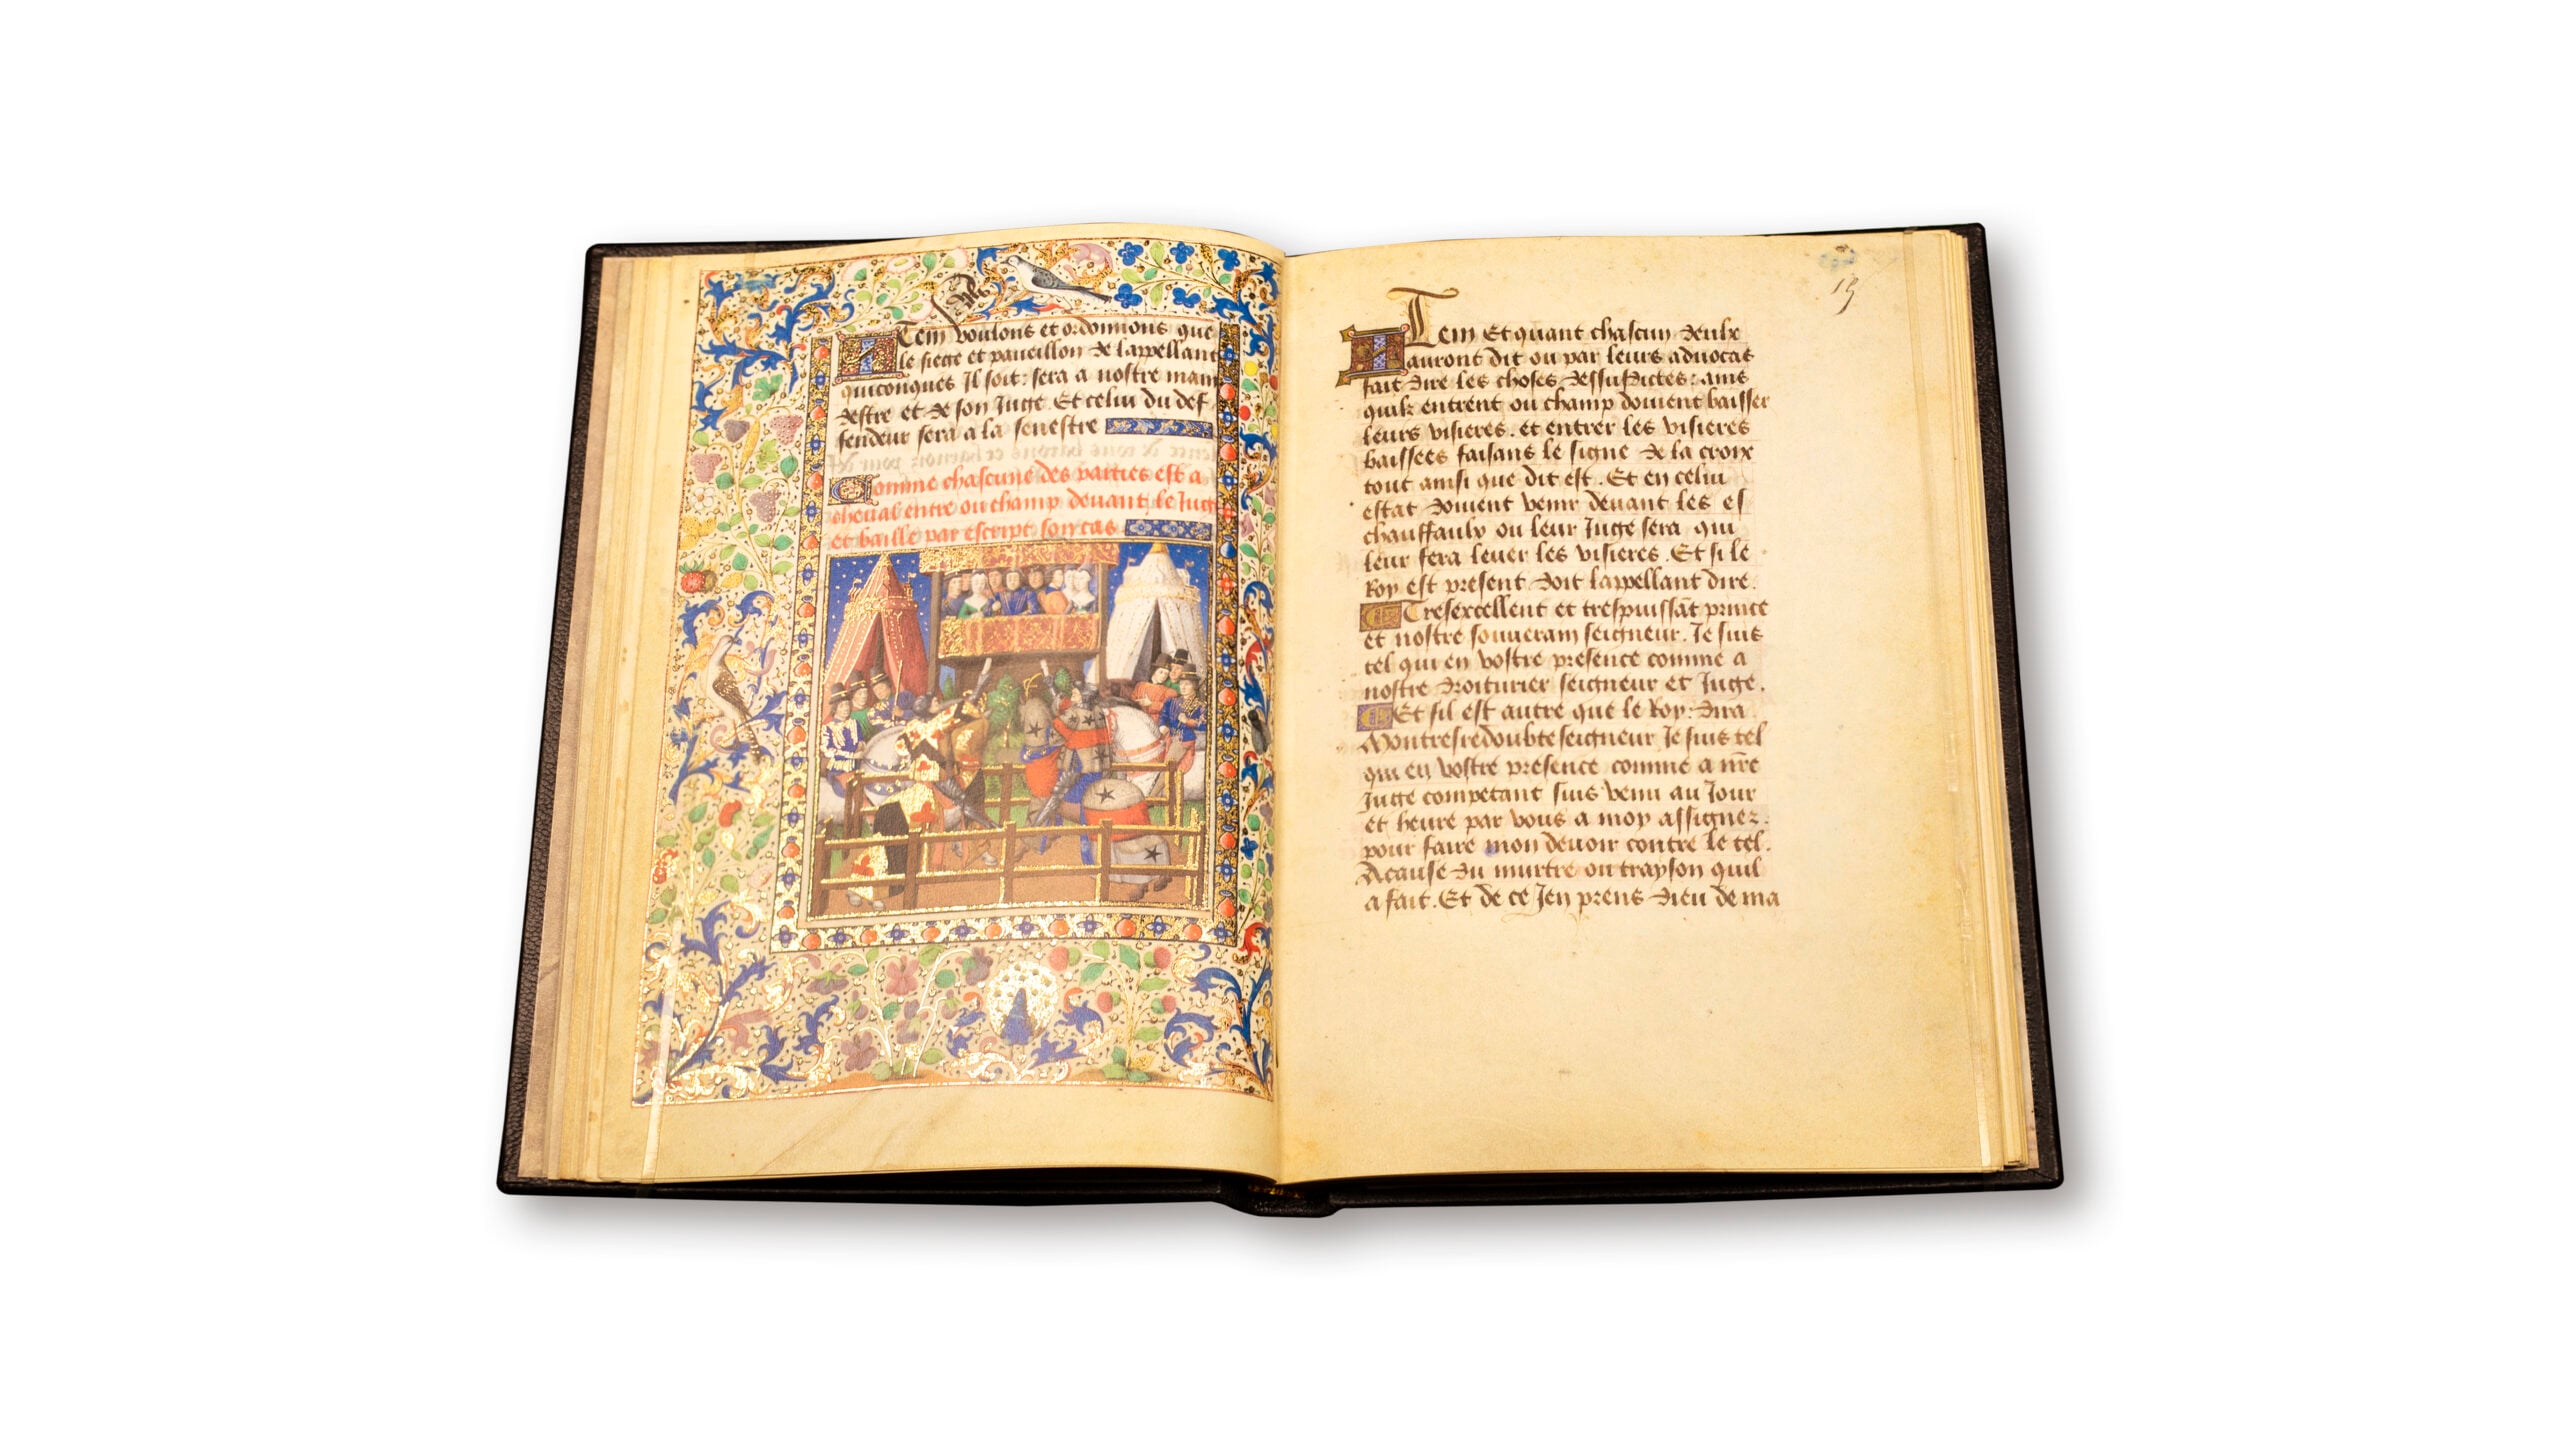 Item voulons et ordonnons que
le siege et paveillon de lappellant
quiconques Il soit: sera a nostre main
destre et de son Juge. Et celui du def
fendeur sera a la senestre
Comme chascune des parties est a
cheval entre ou champ devant le Juge
et baille par escript son cas
19
Item Et quant chascun deulx
auront dit ou par leurs advocas
fait dire les choses dessusdictes: ains
quilz entrent ou champ doivent baisser
leurs visieres. et entrer les visieres
baissees faisans le signe de la croix
tout ainsi que dit est. Et en celui
estat doivent venir devant les es
chauffaulx ou leur Juge sera qui
leur fera lever les visieres. Et si le
Roy est present doit lappellant dire.
Tresexcellent et trespuissãt prince
et nostre souverain seigneur. Je suis
tel qui en vostre presence comme a
nostre droiturier seigneur et Juge.
Et sil est autre que le Roy: dira
Mon tresredoubte seigneur Je suis tel
qui en vostre presence comme a nr̃e
Juge competant suis venu au Jour
et heure par vous a moy assignez.
pour faire mon devoir contre le tel.
A cause du murtre ou trayson quil
a fait. Et de ce Jen prens dieu de ma